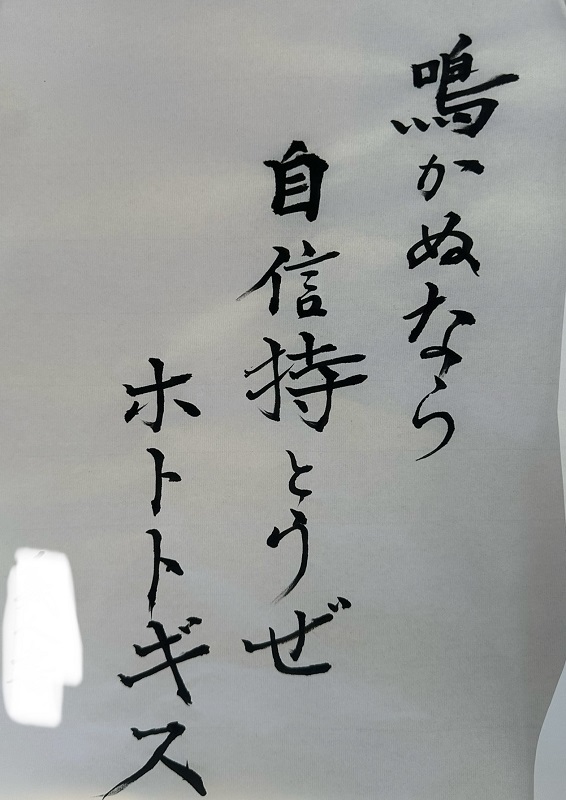 鳴かぬなら
自信持とうぜ
ホトトギス